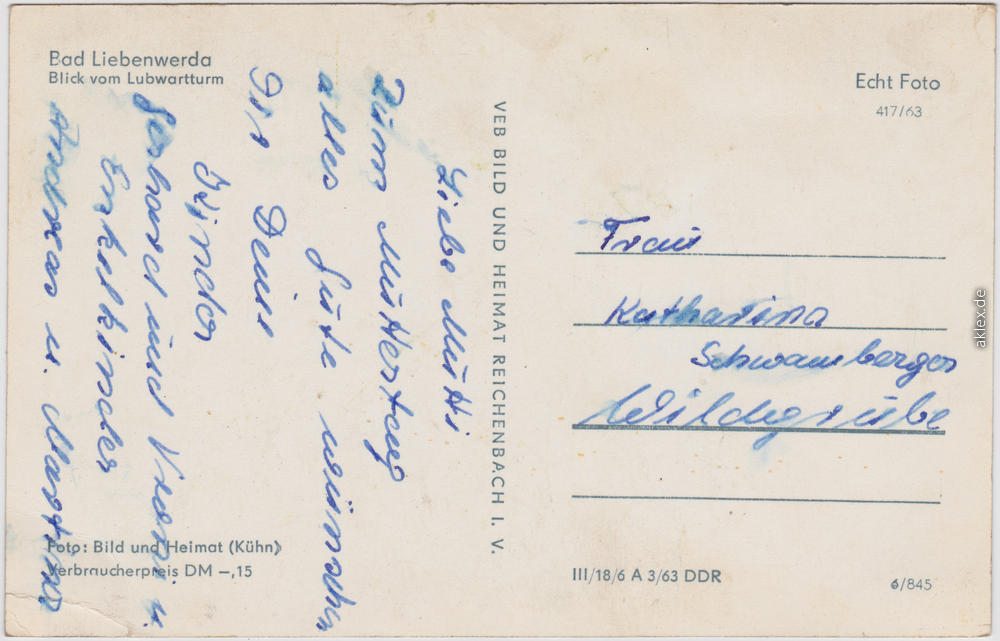 Bad Liebenwerda
Blick vom Lubwartturm
Liebe Mutti
Zum Muttertag
alles Gute wünschen
Dir Deine
Kinder
Gerhard und Vroni u.
Enkelkinder
Andreas u. Martina
Foto: Bild und Heimat (Kühn)
Verbraucherpreis DM –,15
VEB BILD UND HEIMAT REICHENBACH I. V.
Echt Foto
417/63
Frau
Katharina
Schwamberger
Wildgrube
III/18/6 A 3/63 DDR
6/845
aklex.de